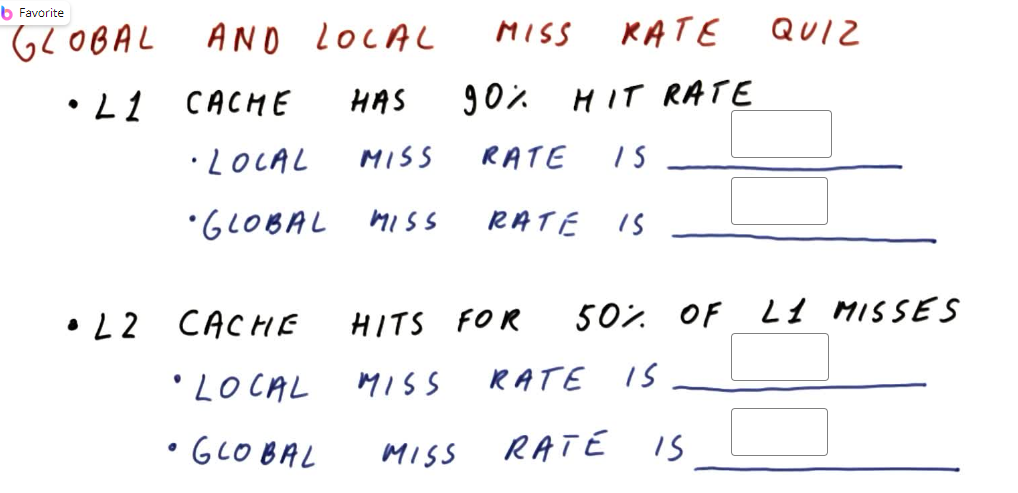 Favorite
GLOBAL AND LOCAL MISS RATE QUIZ
• L1 CACHE HAS 90% HIT RATE
• LOCAL MISS RATE IS
• GLOBAL MISS RATE IS
• L2 CACHE HITS FOR 50% OF L1 MISSES
• LOCAL MISS RATE IS
• GLOBAL MISS RATE IS